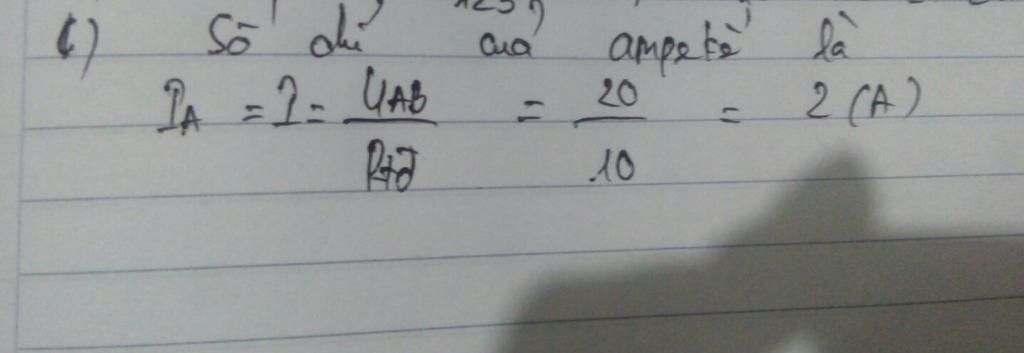 c) Số chỉ của ampekế là
I_A = I = U_AB / R_tđ = 20 / 10 = 2 (A)